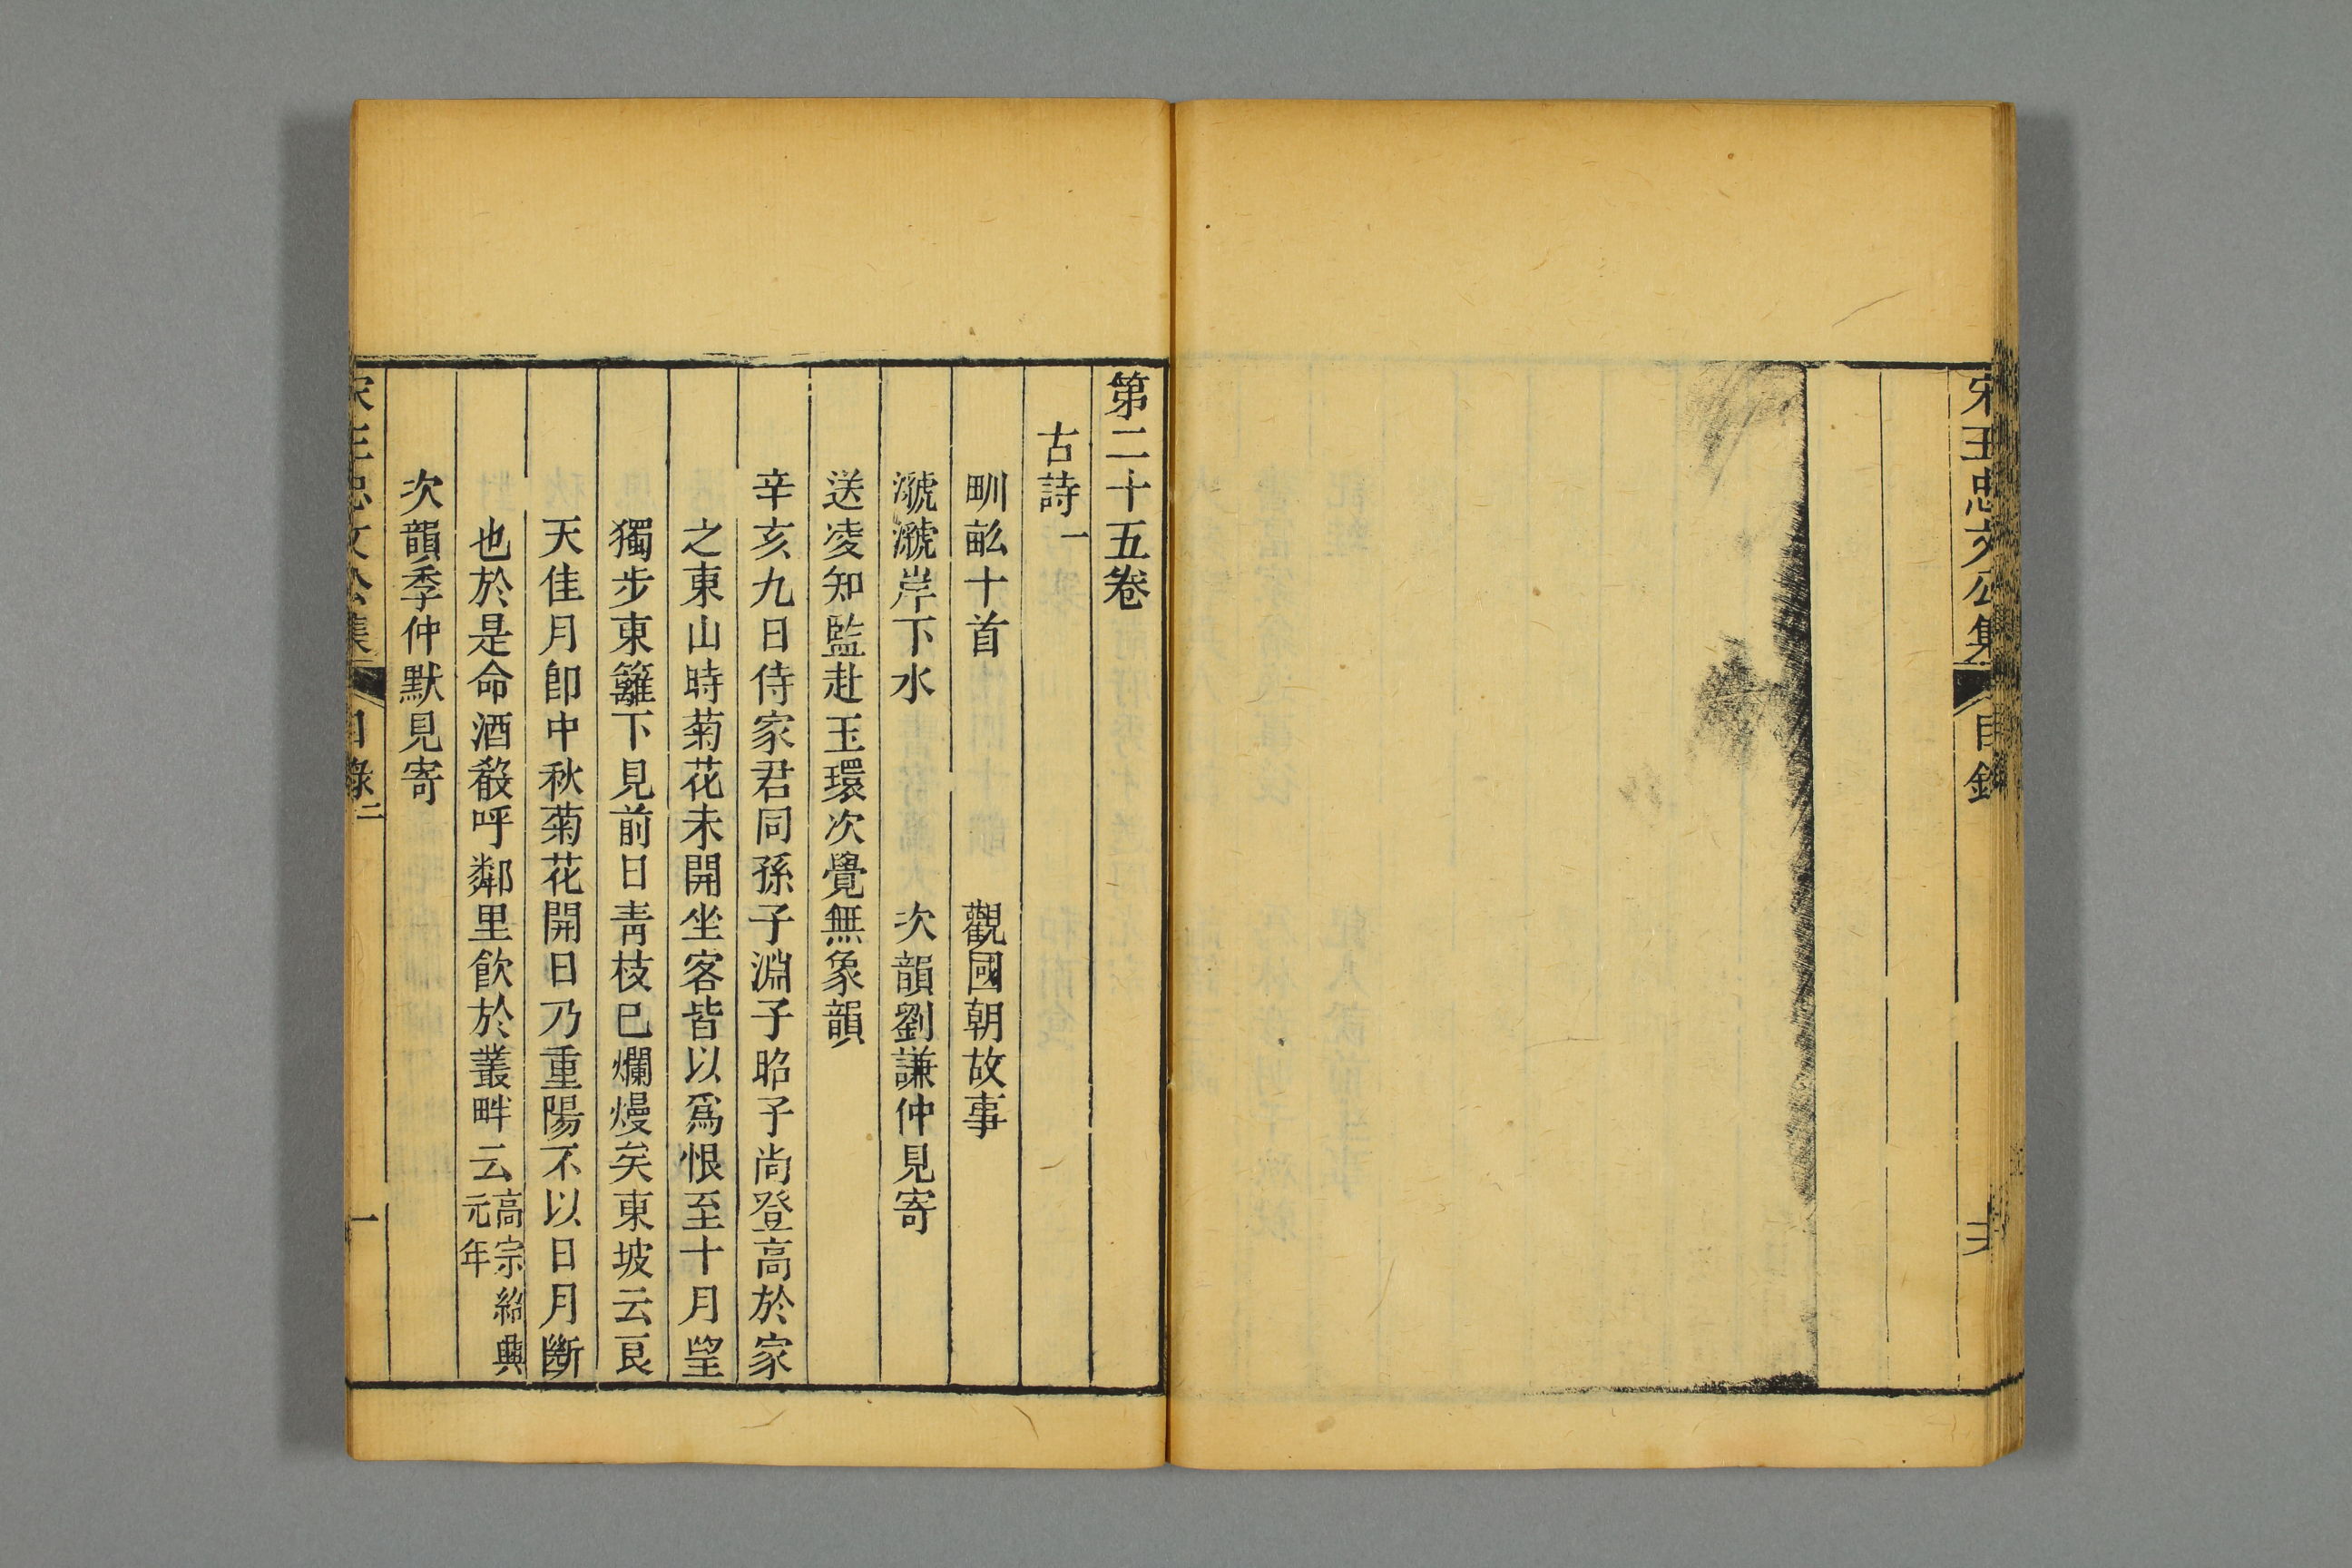 宋王忠文公集 目錄
第二十五卷
古詩一
甽畝十首 觀國朝故事
㶁㶁岸下水 次韻劉謙仲見寄
送凌知監赴玉環次覺無象韻
辛亥九日侍家君同孫子淵子昭子尚登高於家
之東山時菊花未開坐客皆以爲恨至十月望
獨步東籬下見前日青枝已爛熳矣東坡云艮
天佳月卽中秋菊花開日乃重陽不以日月斷
也於是命酒殽呼鄰里飮於叢畔云高宗紹興元年
次韻季仲默見寄
宋王忠文公集 目錄二 一